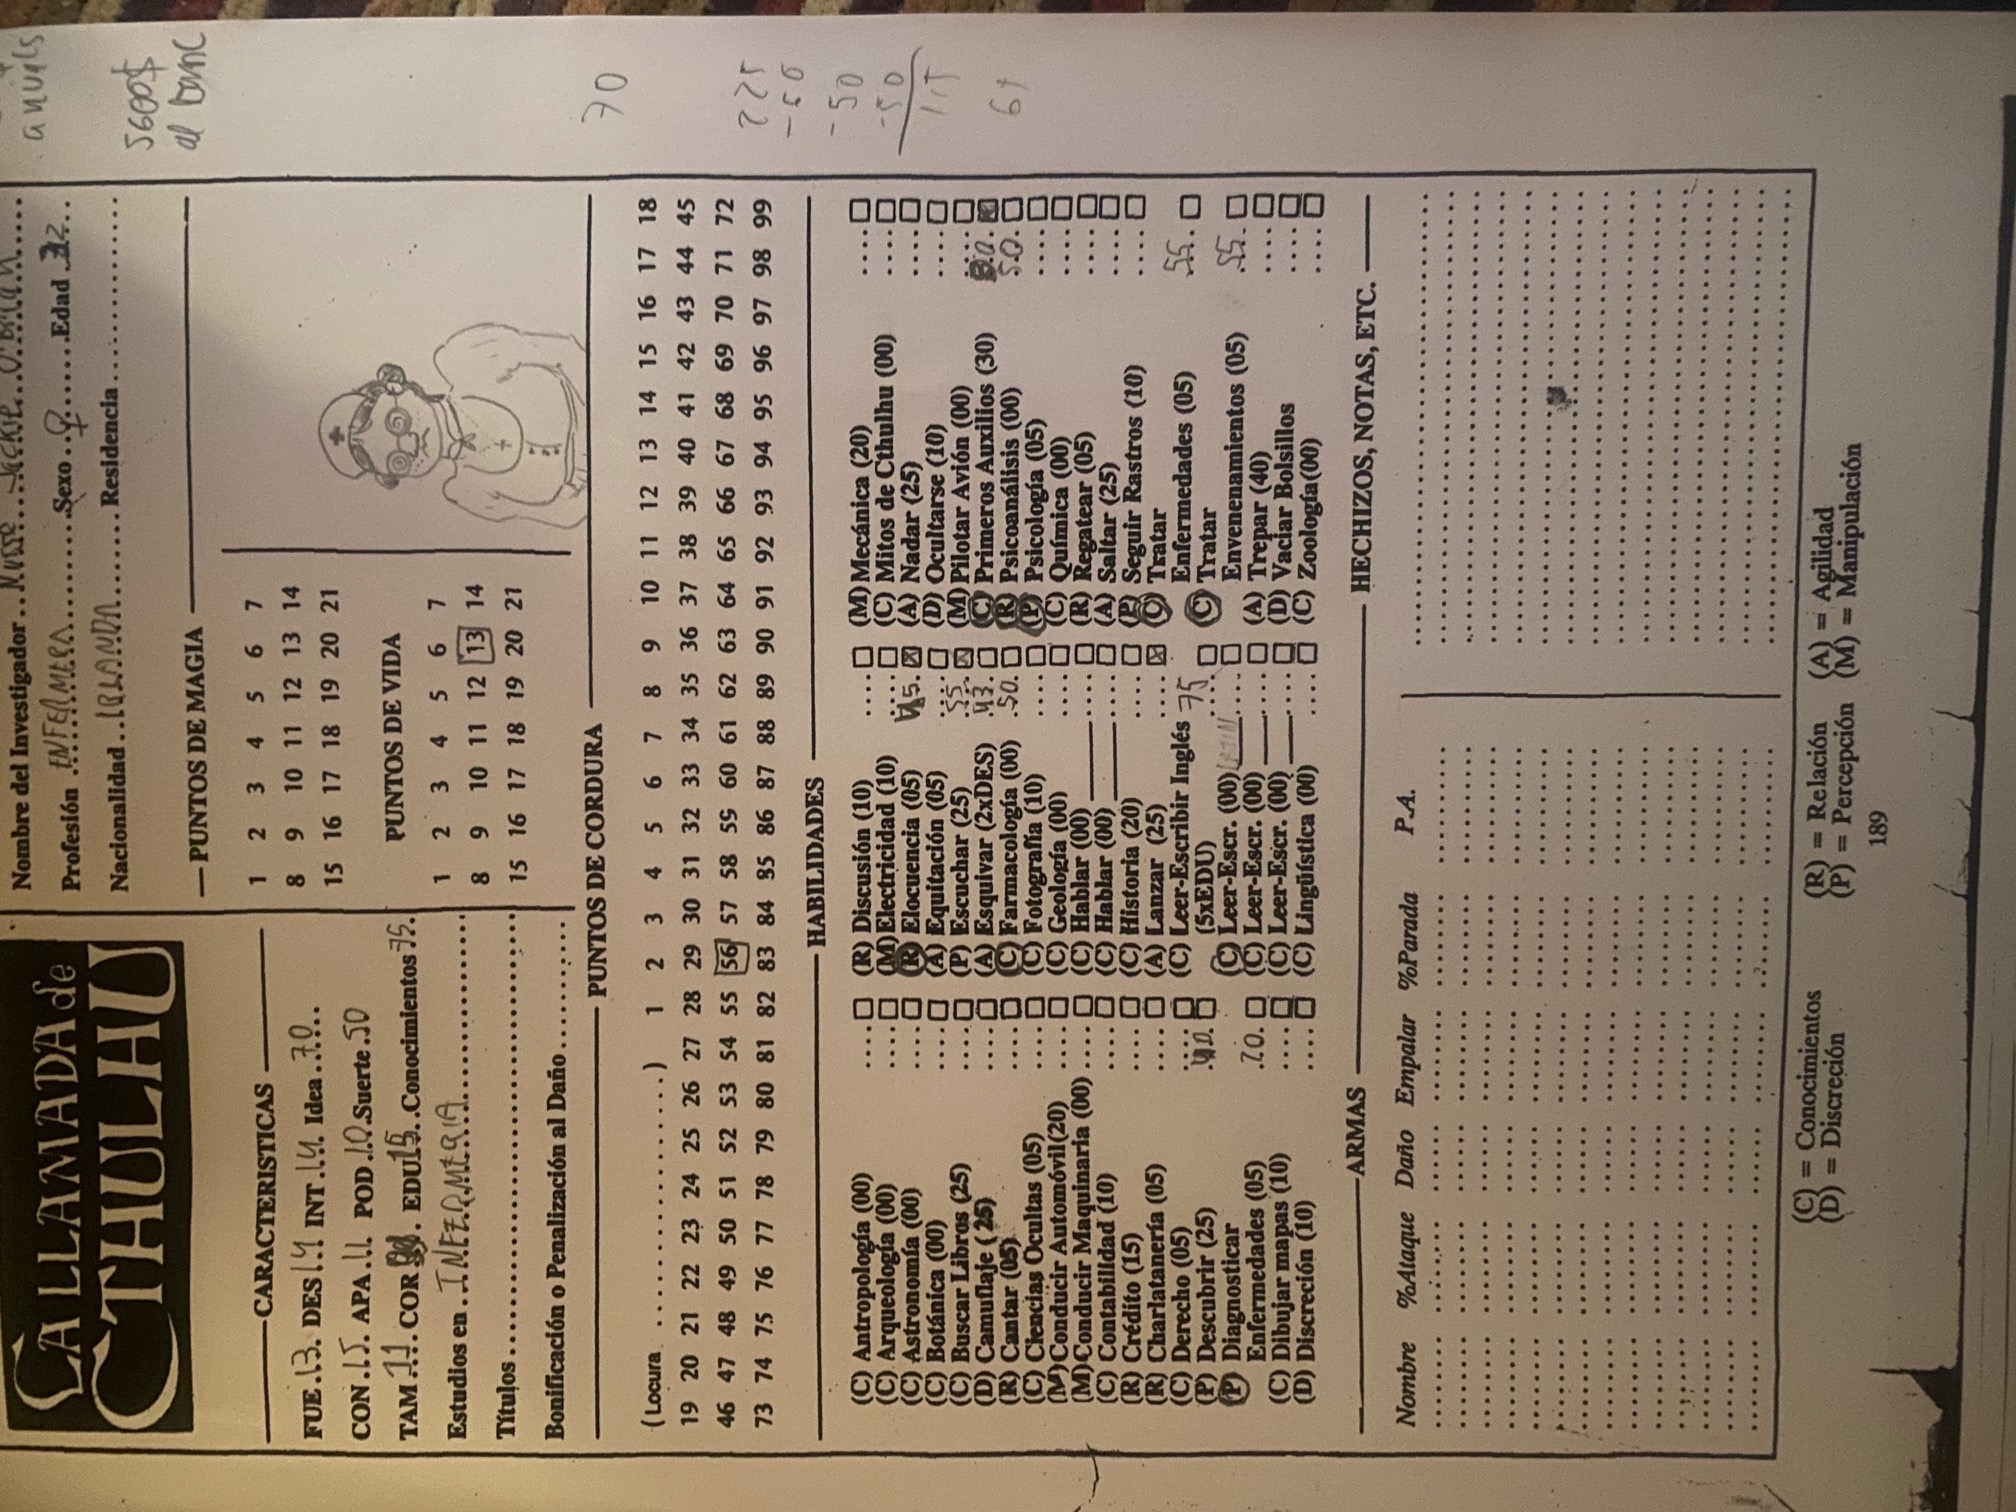 LA LLAMADA de
CTHULHU
Nombre del Investigador .. Nurse Jackie O'Brian
anuals
Profesión ENFERMERA Sexo ♀ Edad 32
Nacionalidad IRLANDA Residencia
5600$
al banc
PUNTOS DE MAGIA
1 2 3 4 5 6 7
8 9 10 11 12 13 14
15 16 17 18 19 20 21
CARACTERISTICAS
FUE 13 DES 14 INT 14 Idea 70
CON 15 APA 11 POD 10 Suerte 50
TAM 11 COR EDU 15 Conocimientos 75
Estudios en INFERMERIA
Títulos
Bonificación o Penalización al Daño
PUNTOS DE VIDA
1 2 3 4 5 6 7
8 9 10 11 12 13 14
15 16 17 18 19 20 21
PUNTOS DE CORDURA
(Locura ) 1 2 3 4 5 6 7 8 9 10 11 12 13 14 15 16 17 18
19 20 21 22 23 24 25 26 27 28 29 30 31 32 33 34 35 36 37 38 39 40 41 42 43 44 45
46 47 48 49 50 51 52 53 54 55 56 57 58 59 60 61 62 63 64 65 66 67 68 69 70 71 72
73 74 75 76 77 78 79 80 81 82 83 84 85 86 87 88 89 90 91 92 93 94 95 96 97 98 99
70
225
-50
-50
115
HABILIDADES
(C) Antropología (00)
(C) Arqueología (00)
(C) Astronomía (00)
(C) Botánica (00)
(C) Buscar Libros (25)
(D) Camuflaje (25)
(R) Cantar (05)
(C) Ciencias Ocultas (05)
(M) Conducir Automóvil (20)
(M) Conducir Maquinaria (00)
(C) Contabilidad (10)
(R) Crédito (15)
(R) Charlatanería (05)
(C) Derecho (05)
(P) Descubrir (25) 40
(P) Diagnosticar
Enfermedades (05) 70
(C) Dibujar mapas (10)
(D) Discreción (10)
(R) Discusión (10)
(M) Electricidad (10)
(R) Elocuencia (05) 45
(A) Equitación (05)
(P) Escuchar (25) 55
(A) Esquivar (2xDES) 43
(C) Farmacología (00) 50
(C) Fotografía (10)
(C) Geología (00)
(C) Hablar (00)
(C) Hablar (00)
(C) Historia (20)
(A) Lanzar (25)
(C) Leer-Escribir Inglés 75
(5xEDU)
(C) Leer-Escr. (00) LATIN
(C) Leer-Escr. (00)
(C) Leer-Escr. (00)
(C) Lingüística (00)
(M) Mecánica (20)
(C) Mitos de Cthulhu (00)
(A) Nadar (25)
(D) Ocultarse (10)
(M) Pilotar Avión (00)
(C) Primeros Auxilios (30)
(R) Psicoanálisis (00) 50
(P) Psicología (05)
(C) Química (00)
(R) Regatear (05)
(A) Saltar (25)
(P) Seguir Rastros (10)
(C) Tratar
Enfermedades (05) 55
(C) Tratar
Envenenamientos (05) 55
(A) Trepar (40)
(D) Vaciar Bolsillos
(C) Zoología (00)
ARMAS
Nombre %Ataque Daño Empalar %Parada P.A.
HECHIZOS, NOTAS, ETC.
(C) = Conocimientos (R) = Relación (A) = Agilidad
(D) = Discreción (P) = Percepción (M) = Manipulación
189